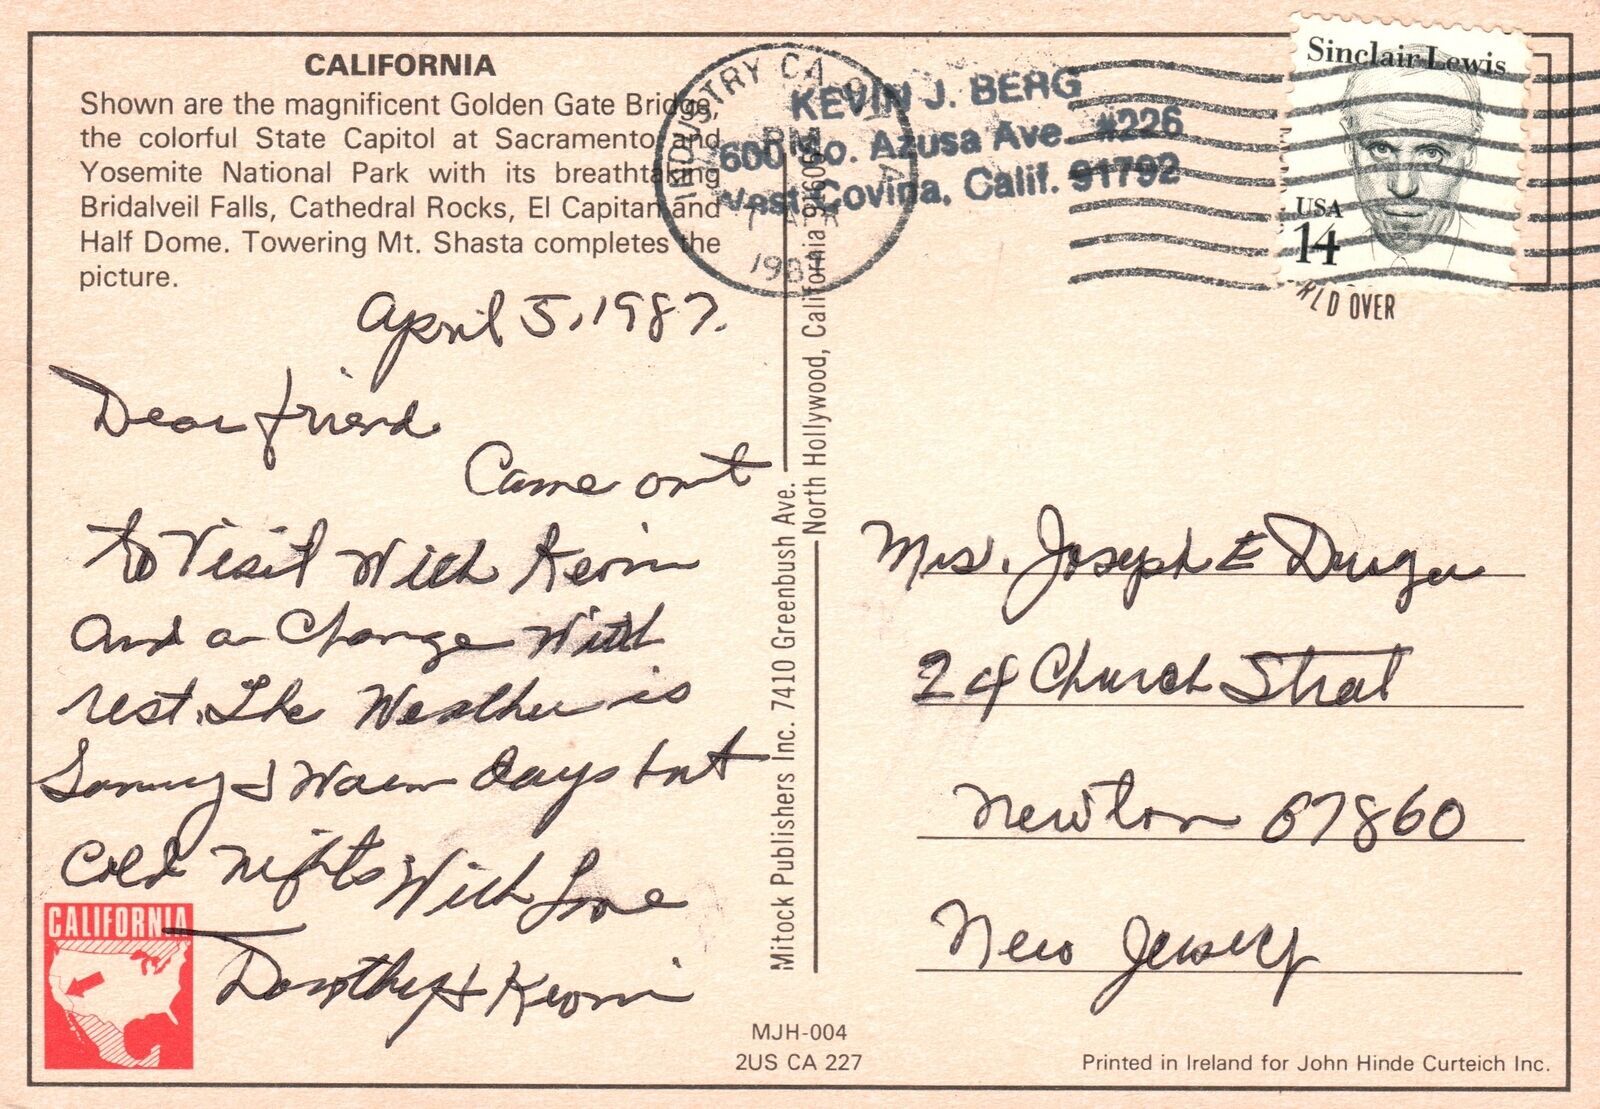 CALIFORNIA
Shown are the magnificent Golden Gate Bridge,
the colorful State Capitol at Sacramento and
Yosemite National Park with its breathtaking
Bridalveil Falls, Cathedral Rocks, El Capitan and
Half Dome. Towering Mt. Shasta completes the
picture.
April 5, 1987.
Dear friend
Came out
to Visit With Kevin
and a Change With
rest. The Weather is
Sunny & Warm days but
Cold nights With Love
Dorothy & Kevin
CALIFORNIA
Mitock Publishers Inc. 7410 Greenbush Ave.
North Hollywood, California 91605
MJH-004
2US CA 227
INDUSTRY CA
PM
KEVIN J. BERG
600 So. Azusa Ave. #226
West Covina, Calif. 91792
Sinclair Lewis
USA
14
RLD OVER
Mrs. Joseph E
24 Church Street
Newton 07860
New Jersey
Printed in Ireland for John Hinde Curteich Inc.